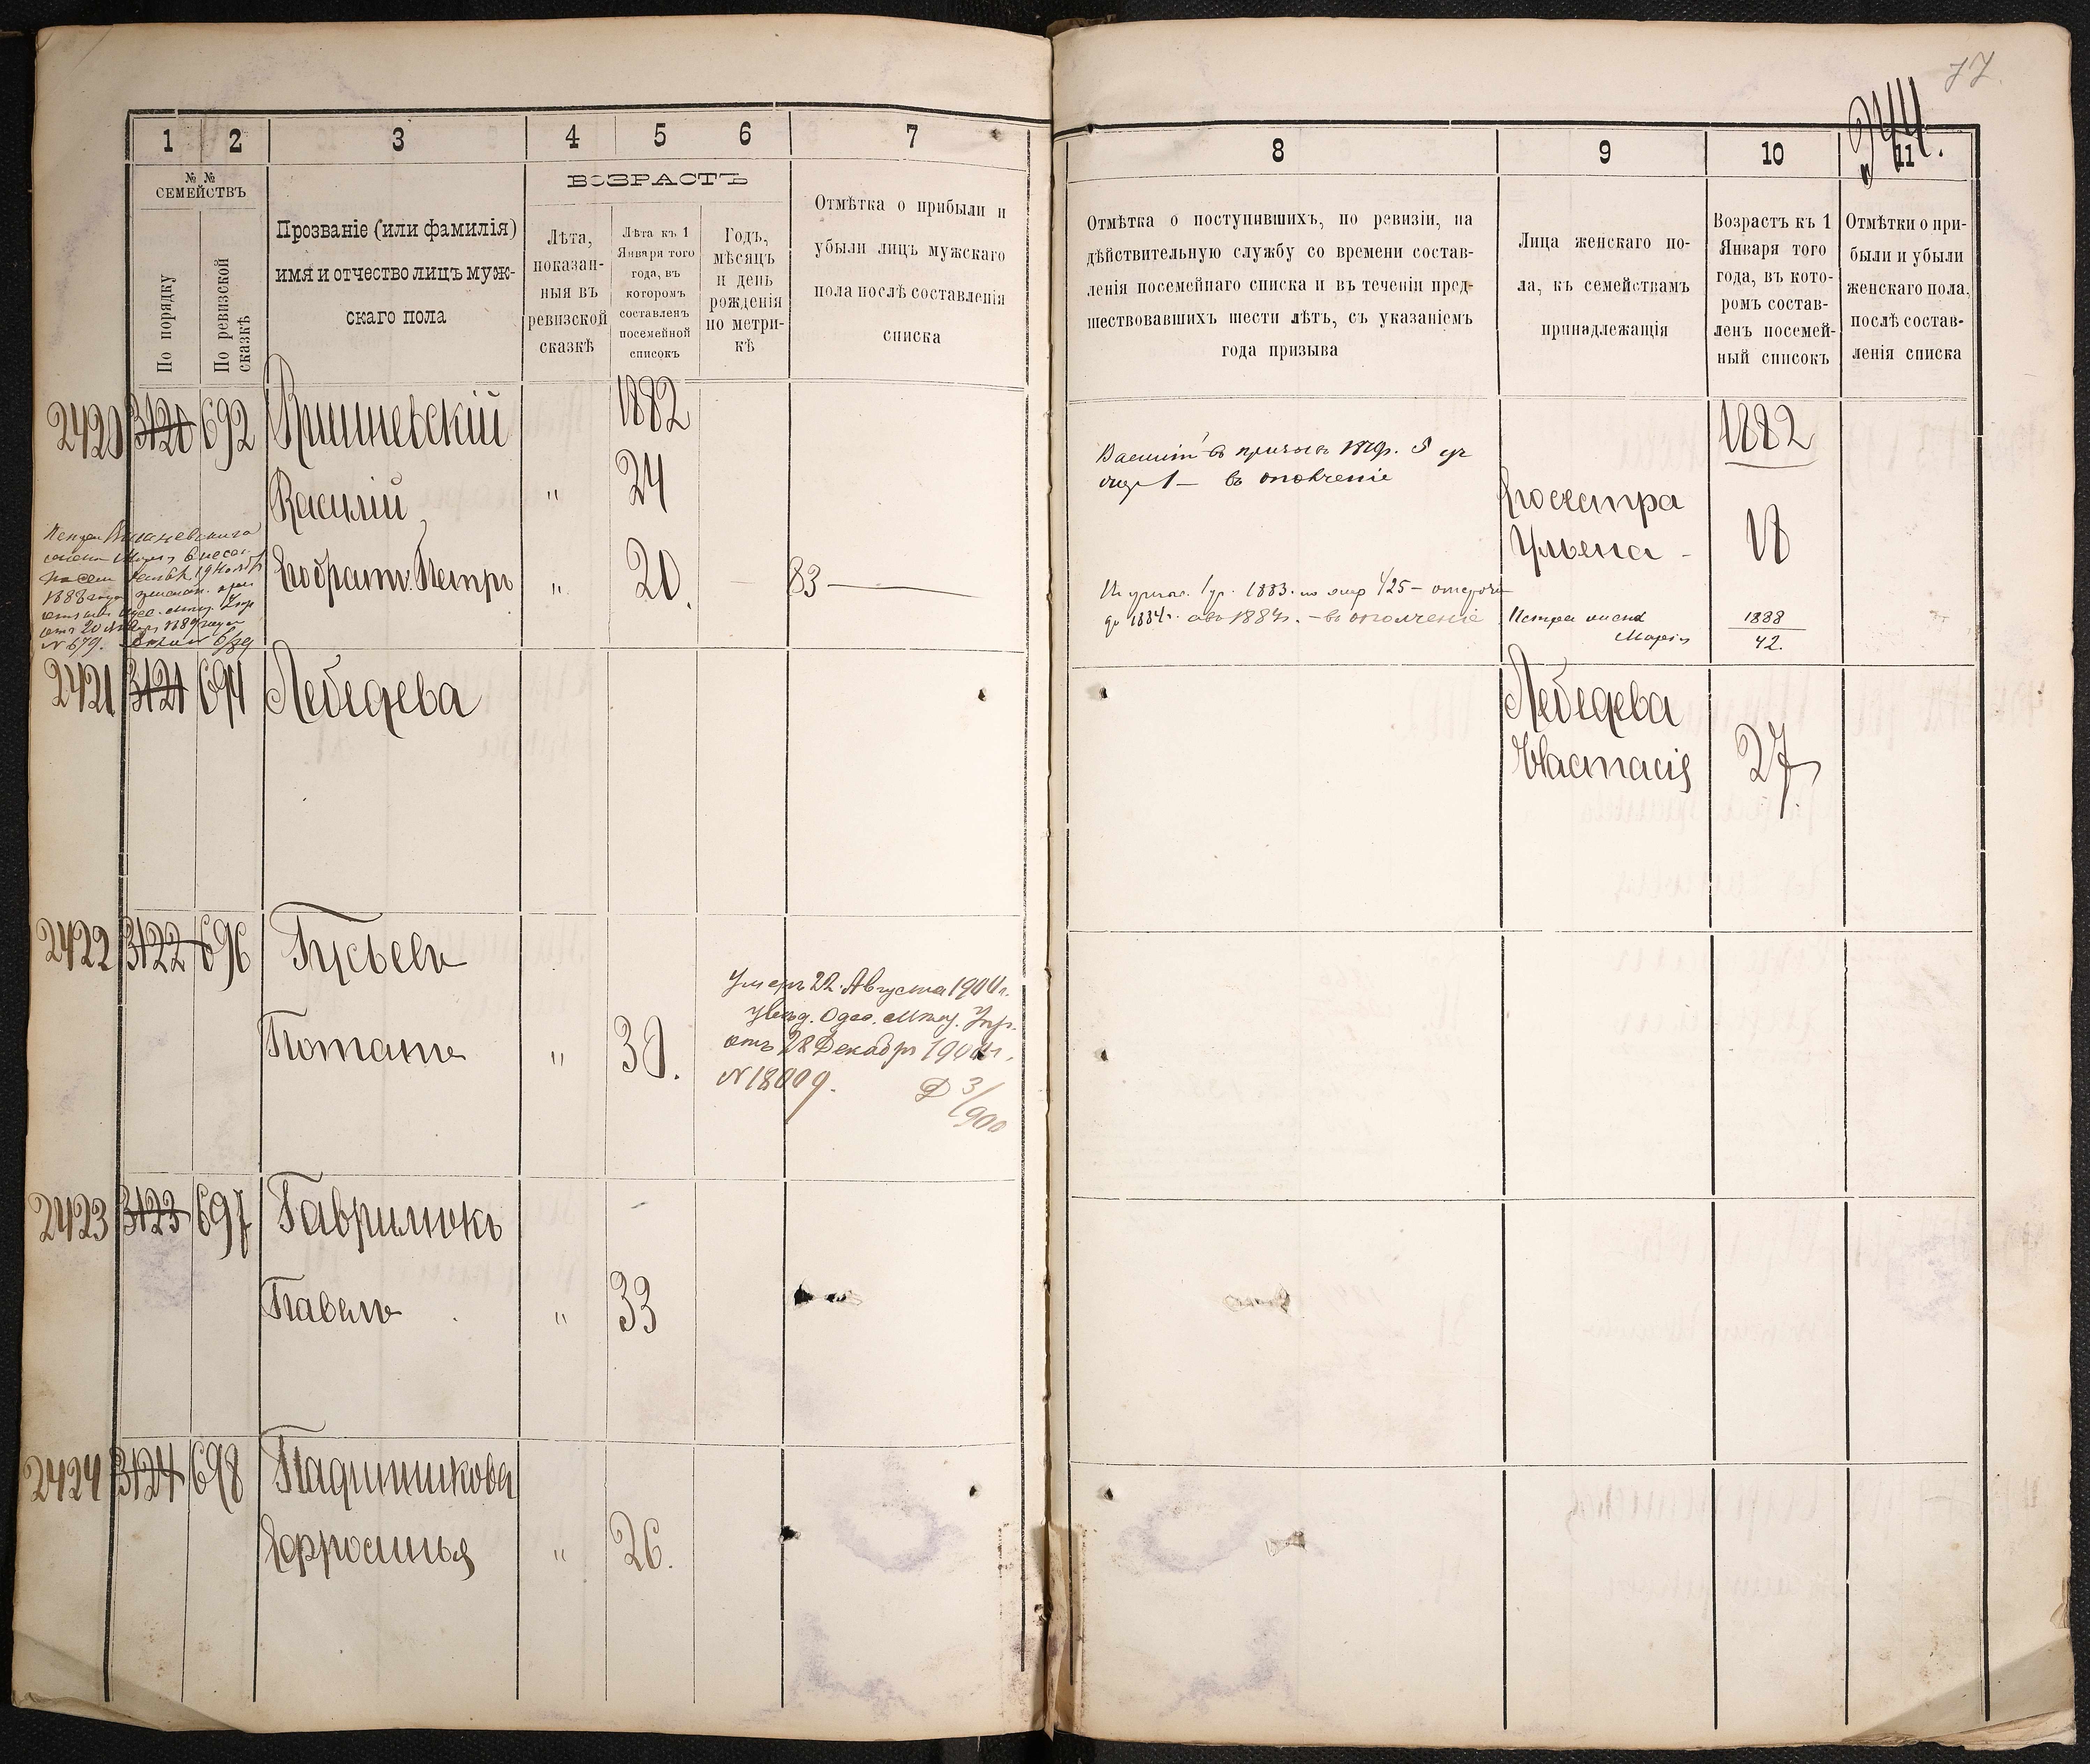 77.
244.
1
2
3
4
5
6
7
№ №
СЕМЕЙСТВЪ
По порядку
По ревизской
сказкѣ
Прозваніе (или фамилія)
имя и отчество лицъ муж-
скаго пола
ВОЗРАСТЪ
Лѣта,
показан-
ныя въ
ревизской
сказкѣ
Лѣта къ 1
Января того
года, въ
которомъ
составленъ
посемейной
списокъ
Годъ,
мѣсяцъ
и день
рожденія
по метри-
кѣ
Отмѣтка о прибыли и
убыли лицъ мужскаго
пола послѣ составленія
списка
2420 3120 692 Вишневскій 1882
Василій " 24
Его братъ Петръ " 20. 83 —
Вишневскаго
19 Ноября
1888 года
отъ 20 1889 года
N 679. 6/89
2421 3121 694 Лебедева
2422 3122 696 Гусевъ
Потапъ " 30.
Умеръ 22 Августа 1900 г.
увѣд. Одес. Мѣщ. Упр.
отъ 28 Декабря 1900 г.
N 18009.
3/900
2423 3123 697 Гаврилюкъ
Павелъ " 33
2424 3124 698 Падчишникова
Ефросинья " 26.
8
9
10
11
Отмѣтка о поступившихъ, по ревизіи, на
дѣйствительную службу со времени состав-
ленія посемейнаго списка и въ теченіи пред-
шествовавшихъ шести лѣтъ, съ указаніемъ
года призыва
Лица женскаго по-
ла, къ семействамъ
принадлежащія
Возрастъ къ 1
Января того
года, въ кото-
ромъ состав-
ленъ посемей-
ный списокъ
Отмѣтки о при-
были и убыли
женскаго пола,
послѣ состав-
ленія списка
1882
Василій въ призывъ 1879 г.
въ ополченіе
Его сестра
Ульяна - 18
1883. 425 — отсрочка
до 1884 г. 1884 г. — въ ополченіе
Петра жена 1888
Марія 42.
Лебедева
Настасія 27.